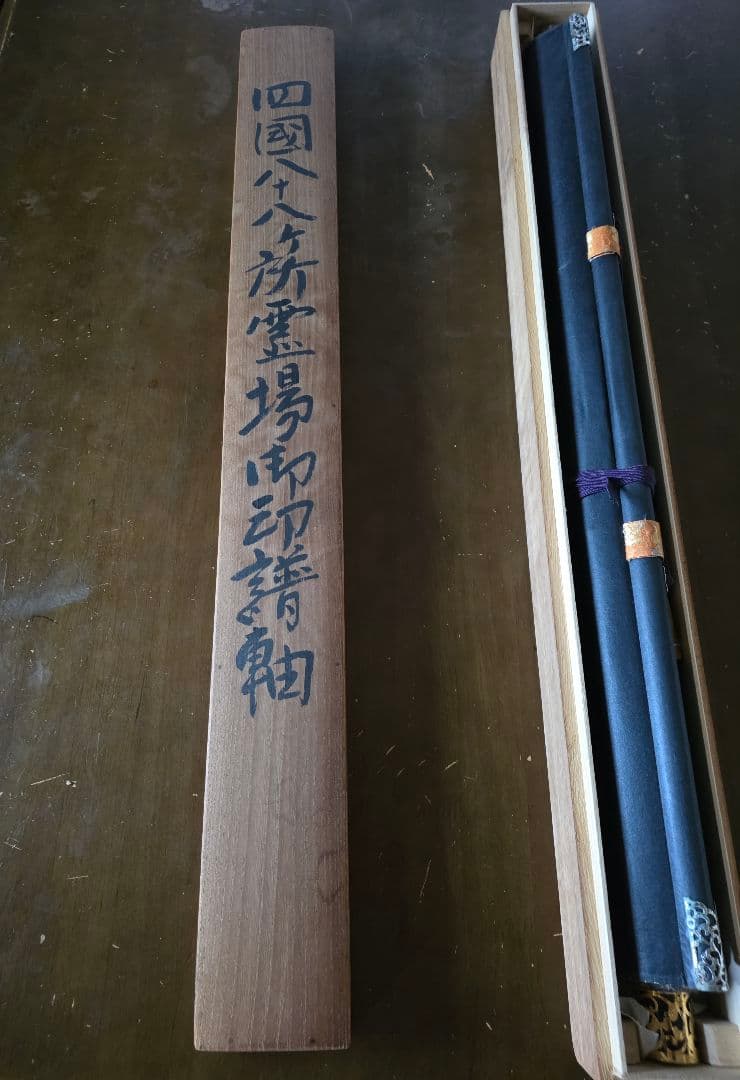 四國八十八ヶ所霊場御印譜軸